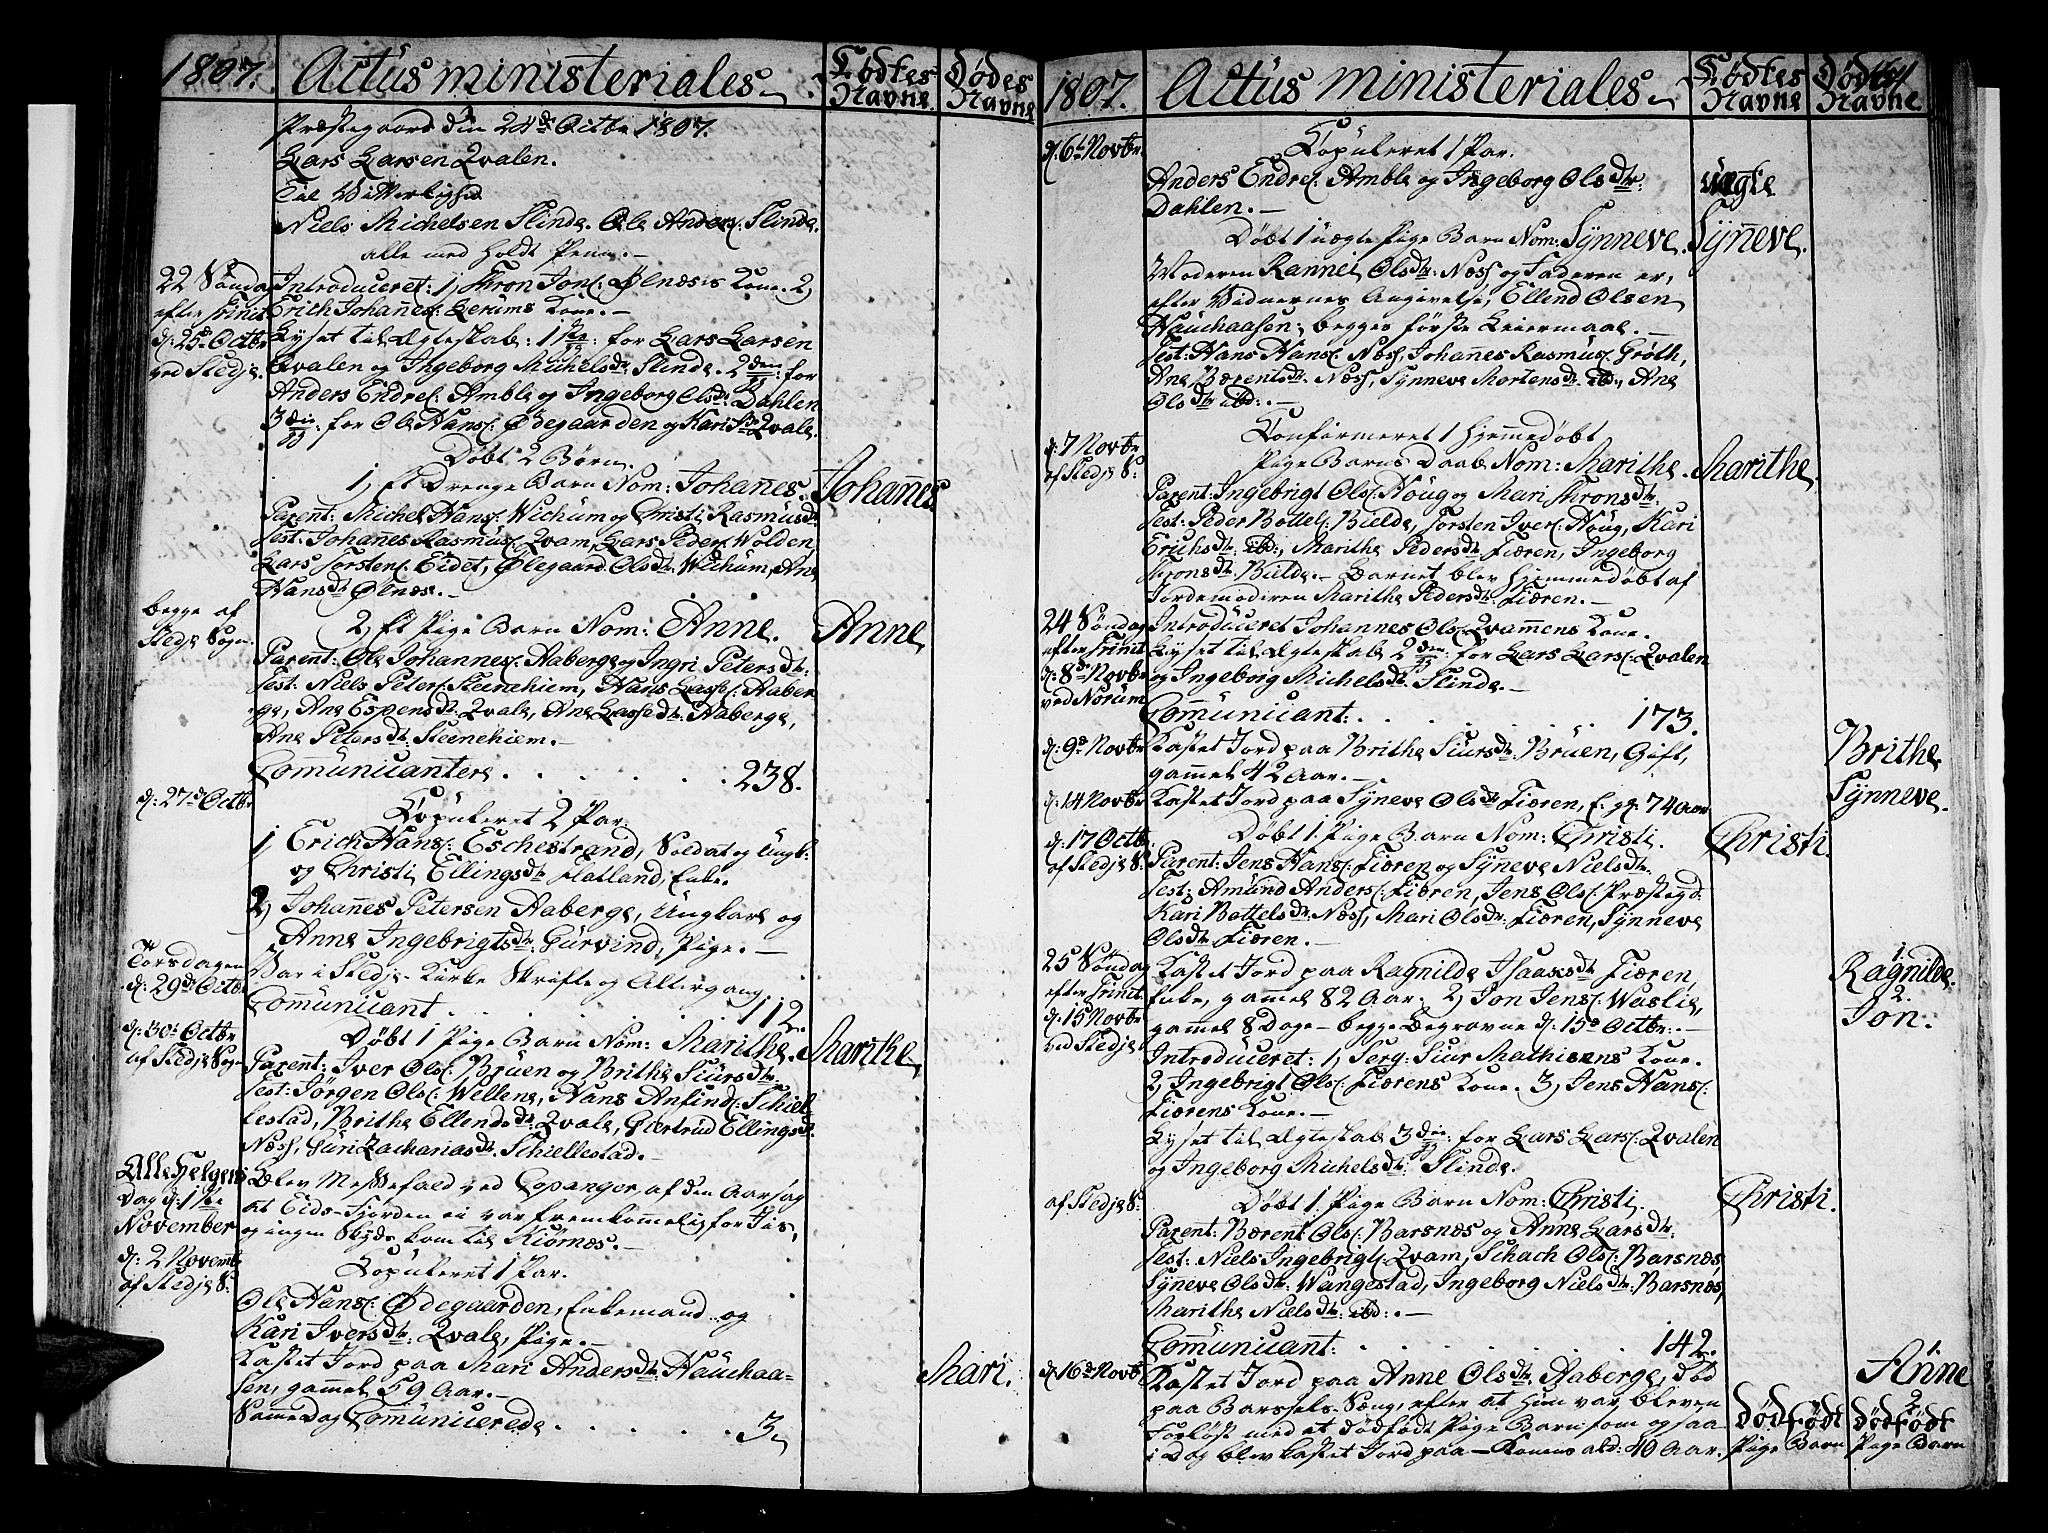 1807.
Actus ministeriales
Fødtes Navne.
Dødes Navne
Præstegaard den 24de Octbr 1807.
Lars Larsen Qvalen.
Til Vitterlighed
Niels Michelsen Slinde. Ole Anders: Slinde.
alle med holdt Penn.
22 Søndag efter Trinit d: 25de Octbr ved Stedje.
Introduceret: 1, Thron Jons: Ølnæsis Kone. 2,
Erich Johanes: Lerums Kone.
Lyset til Ægteskab: 1 for Lars Larsen
Qvalen og Ingeborg Michelsdtr Slinde. 2den for
Anders Endres: Amble og Ingeborg Olsdtr Dahlen
3die for Ole Hans: Ødegaarden og Kari Qvale.
Døbt 2 Børn.
1, Et Drenge Barn Nom: Johanes.
Johanes
Parent: Michel Hans: Wichum og Christi Rasmusdtr
Test: Johanes Rasmus: Qvam, Lars Peders: Wolden
Lars Torstens: Eidet, Ølegaard Olsdtr: Wichum, Ane
Hansdtr Ølnæs.
begge af Stedje Sogn.
2, Et Pige Barn Nom: Anne.
Anne
Parent: Ole Johannes: Aaberge og Ingri Petersdtr:
Test: Niels Peters: Steenehiem, Hans Lasses: Aaber
ge, Ane Espensdtr: Qvale, Ane Lassedtr: Aaberge,
Ane Petersdtr: Steenehiem.
Communicantere . . . . . 238.
d: 27de Octbr
Copuleret 2 Par.
1, Erich Hans: Eschestrand, Soldat og Ungk:
og Christi Ellingsdtr Flatland, Enke.
2, Johanes Petersen Aaberge, Ungkarl og
Anne Ingebrigtsdtr: Gurvind, Pige.
Torsdagen d: 29de Octbr
Var i Stedje Kirke Skrifte og Altergang
Communicant . . . . . 112.
d: 30te Octbr af Stedje Sogn
Døbt 1 Pige Barn Nom: Marithe.
Marithe
Parent: Iver Ols: Bruen og Brithe Siursdtr.
Test: Jørgen Ols: Wellene, Hans Anfind: Schiel
lestad, Brithe Ellendsdtr: Qvale, Giertrud Ellingsdtr
Næss, Guri Zachariasdtr: Schiellestad.
Alle Helgens Dag d: 1ste November
Blev Messefald ved Copanger, af den Aarsag
at Eids-Fjorden ei var fremkommelig for Iis,
og ingen Skyds kom til Kiørnæs.
d: 2 Novembr af Stedje S:
Copuleret 1 Par.
Ole Hans: Ødegaarden, Enkemand og
Kari Iversdtr: Qvale, Pige.
Kastet Jord paa Mari Andersdtr: Hauchaa-
sen, gammel 59 Aar.
Mari.
Samme Dag Comunicerede . . . . . 3,
1807.
Actus ministeriales
Fødtes Navne
Dødes Navne
d. 6te Novbr.
Copuleret 1 Par.
Anders Endres: Amble og Ingeborg Olsdtr.
Dahlen.
uægte
Døbt 1 uægte Pige Barn Nom: Synneve.
Synneve.
Moderen Rannei Olsdtr: Næss og Faderen er,
efter Vidnernes Angivelse, Ellend Olsen
Hauchaasen, begges første Leiermaal.
Test: Hans Hans: Næss, Johanes Rasmus: Grøth,
Ane Bærentsdtr. Næss, Synneve Mortensdtr. ibd:, Ane
Olsdtr ibd:.
d: 7 Novbr af Stedje S:
Confirmeret 1 hjemmedøbt
Pige Barns Daab Nom: Marithe.
Marithe.
Parent: Ingebrigt Ols: Houg og Mari Thronsdtr.
Test: Peder Bottel: Bielde, Torsten Iver: Houg, Kari
Erichsdtr: ibd:, Marithe Pedersdtr Fiæren, Ingeborg
Thronsdtr: Bielde. Barnet blev hjemmedøbt af
Jordemoderen Marithe Pedersdtr: Fiæren.
24 Søndag efter Trinit d: 8de Novbr ved Norum
Introduceret Johannes Ols: Qvammens Kone.
Lyset til Ægteskab 2den: for Lars Lars: Qvalen
og Ingeborg Michelsdtr: Slinde.
Communicant: . . . . . 173.
d: 9de Novbr
Kastet Jord paa Brithe Siursdtr: Bruen, Gift,
gammel 42 Aar.
Brithe
d: 14 Novbr
Kastet Jord paa Syneve Olsdtr Fiæren, E. gl: 74 Aar
Synneve.
d: 17 Octbr. af Stedje S:
Døbt 1. Pige Barn Nom: Christi.
Christi.
Parent: Jens Hans: Fiæren og Syneve Nielsdtr.
Test: Amund Anders: Fiæren, Jens Ols: Præstegd.
Kari Bottelsdtr Næss, Mari Olsdtr: Fiæren, Synneve
Olsdtr Fiæren.
25 Søndag efter Trinit. d: 15 Novbr ved Stedje
Kastet Jord paa Ragnilde Isaacsdtr Fiæren,
Enke, gammel 82 Aar. 2, Jon Jens: Waslie,
gammel 8 Dage - begge Begravne d: 15de Octbr:.
1. Ragnilde.
2. Jon.
Introduceret: 1, Serg: Siur Mathisens Kone.
2, Ingebrigt Ols: Fiærens Kone. 3, Jens Hans:
Fiærens Kone.
Lyset til Ægteskab 3die for Lars Lars: Qvalen
og Ingeborg Michelsdtr: Slinde.
af Stedje S:
Døbt 1. Pige Barn Nom: Christi.
Christi.
Parent: Bærent Ols: Barsnæs og Anne Larsdtr.
Test: Niels Ingebrigts: Qvam, Schach Ols: Barsnæs,
Syneve Olsdtr: Wangestad, Ingeborg Nielsdtr: Barsnæs,
Marithe Nielsdtr: ibd:.
Communicant: . . . . . 142.
d. 16de Novbr
Kastet Jord paa Anne Olsdtr. Aaberge, død
paa Barssels-Seng, efter at hun var bleven
forløst med et dødfødt Pige Barn som og saa
i Dag blev kastet Jord paa - Konens ald: 40 Aar.
Dødfødt Pige Barn
1. Anne
2. Dødfødt Pige Barn